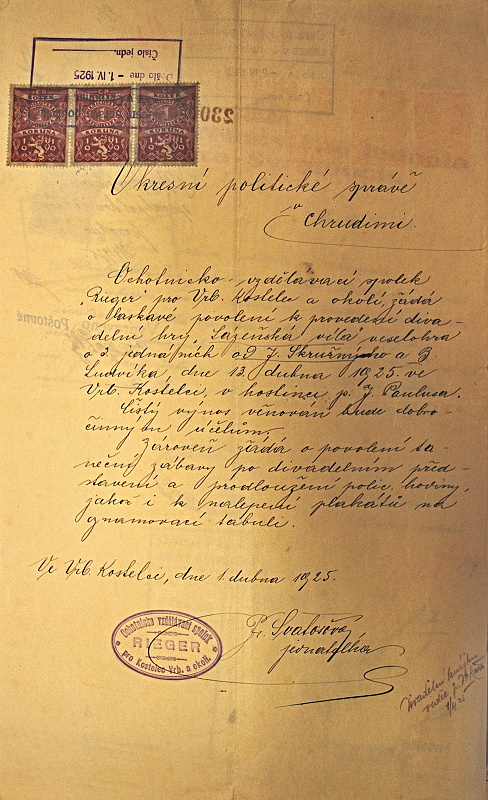 Číslo jedn.
Došlo dne - 1. IV. 1925
230
KORUNA
KORUNA
KORUNA
Okresní politické správě
v Chrudimi.
Ochotnicko-vzdělávací spolek
"Rieger" pro Vrb. Kostelec a okolí, žádá
o laskavé povolení k provedení diva-
delní hry "Lázeňská víla" veselohra
o 3. jednáních od J. Skružného a B
Ludvíka, dne 13. dubna 1925 ve
Vrb. Kostelci, v hostinci p. J. Paulusa.
Čistý výnos věnován bude dobro-
činným účelům.
Zároveň žádá o povolení ta-
neční zábavy po divadelním před-
stavení a prodloužení polic. hodiny,
jakož i k nalepení plakátů na
oznamovací tabuli.
Ve Vrb. Kostelci, dne 1. dubna 1925.
Ochotnicko vzdělávací spolek
RIEGER
pro Kostelec Vrb. a okolí.
Fr. Svatošová
jednatelka
Divadelní